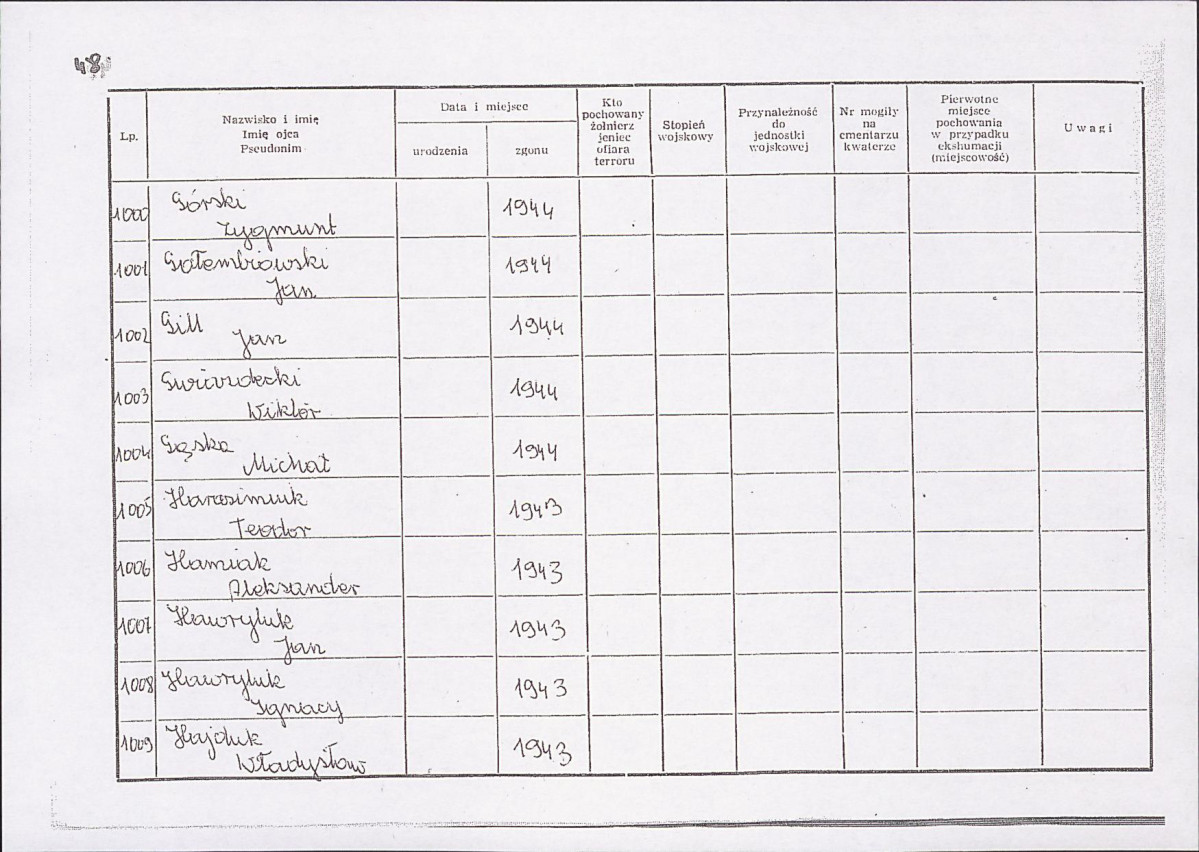 48
Lp.
Nazwisko i imię
Imię ojca
Pseudonim
Data i miejsce
urodzenia
zgonu
Kto
pochowany
żołnierz
jeniec
ofiara
terroru
Stopień
wojskowy
Przynależność
do
jednostki
wojskowej
Nr mogiły
na
cmentarzu
kwaterze
Pierwotne
miejsce
pochowania
w przypadku
ekshumacji
(miejscowość)
Uwagi
1000 Górski 1944
Zygmunt
1001 Gałembiowski 1944
Jan
1002 Gill 1944
Jan
1003 Gwiazdecki 1944
Wiktor
1004 Gąska 1944
Michał
1005 Harasimiuk 1943
Teodor
1006 Hamiak 1943
Aleksander
1007 Hawryluk 1943
Jan
1008 Hawryluk 1943
Ignacy
1009 Hajduk 1943
Władysław